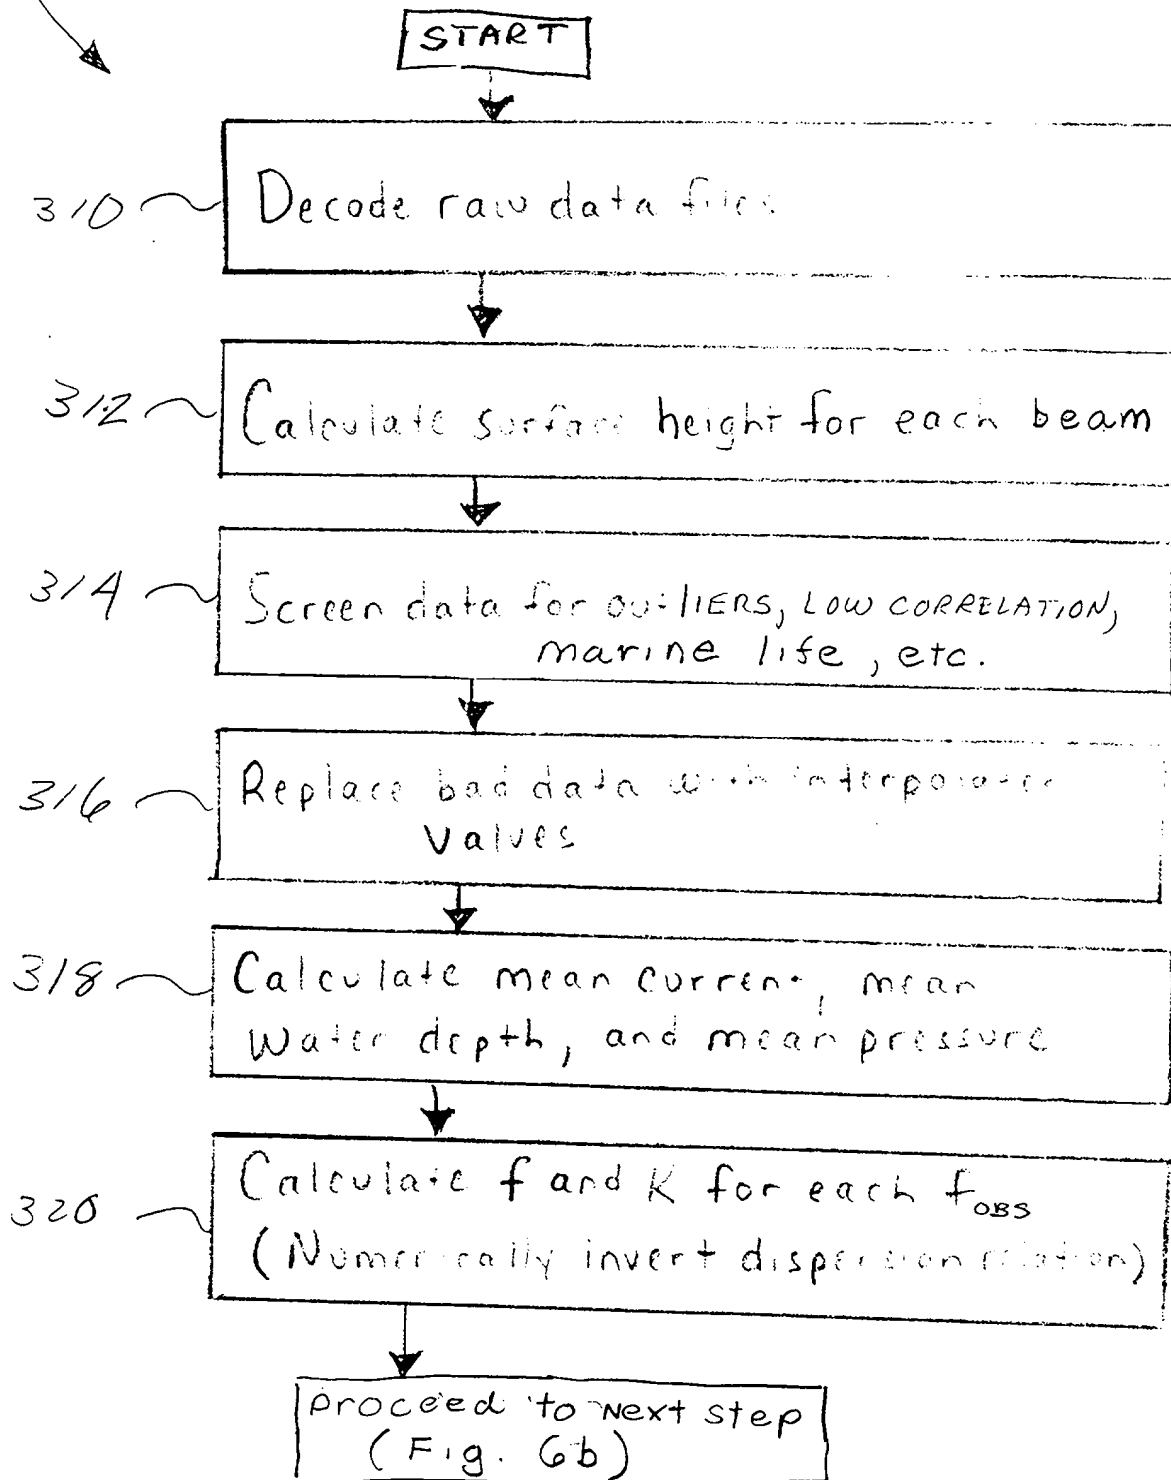 START
310
Decode raw data files
312
Calculate surface height for each beam
314
Screen data for outlIERS, LOW CORRELATION,
marine life, etc.
316
Replace bad data with interpolated
Values
318
Calculate mean current, mean
Water depth, and mean pressure
320
Calculate f and K for each fOBS
(Numerically invert dispersion relation)
proceed to Next step
(Fig. 6b)